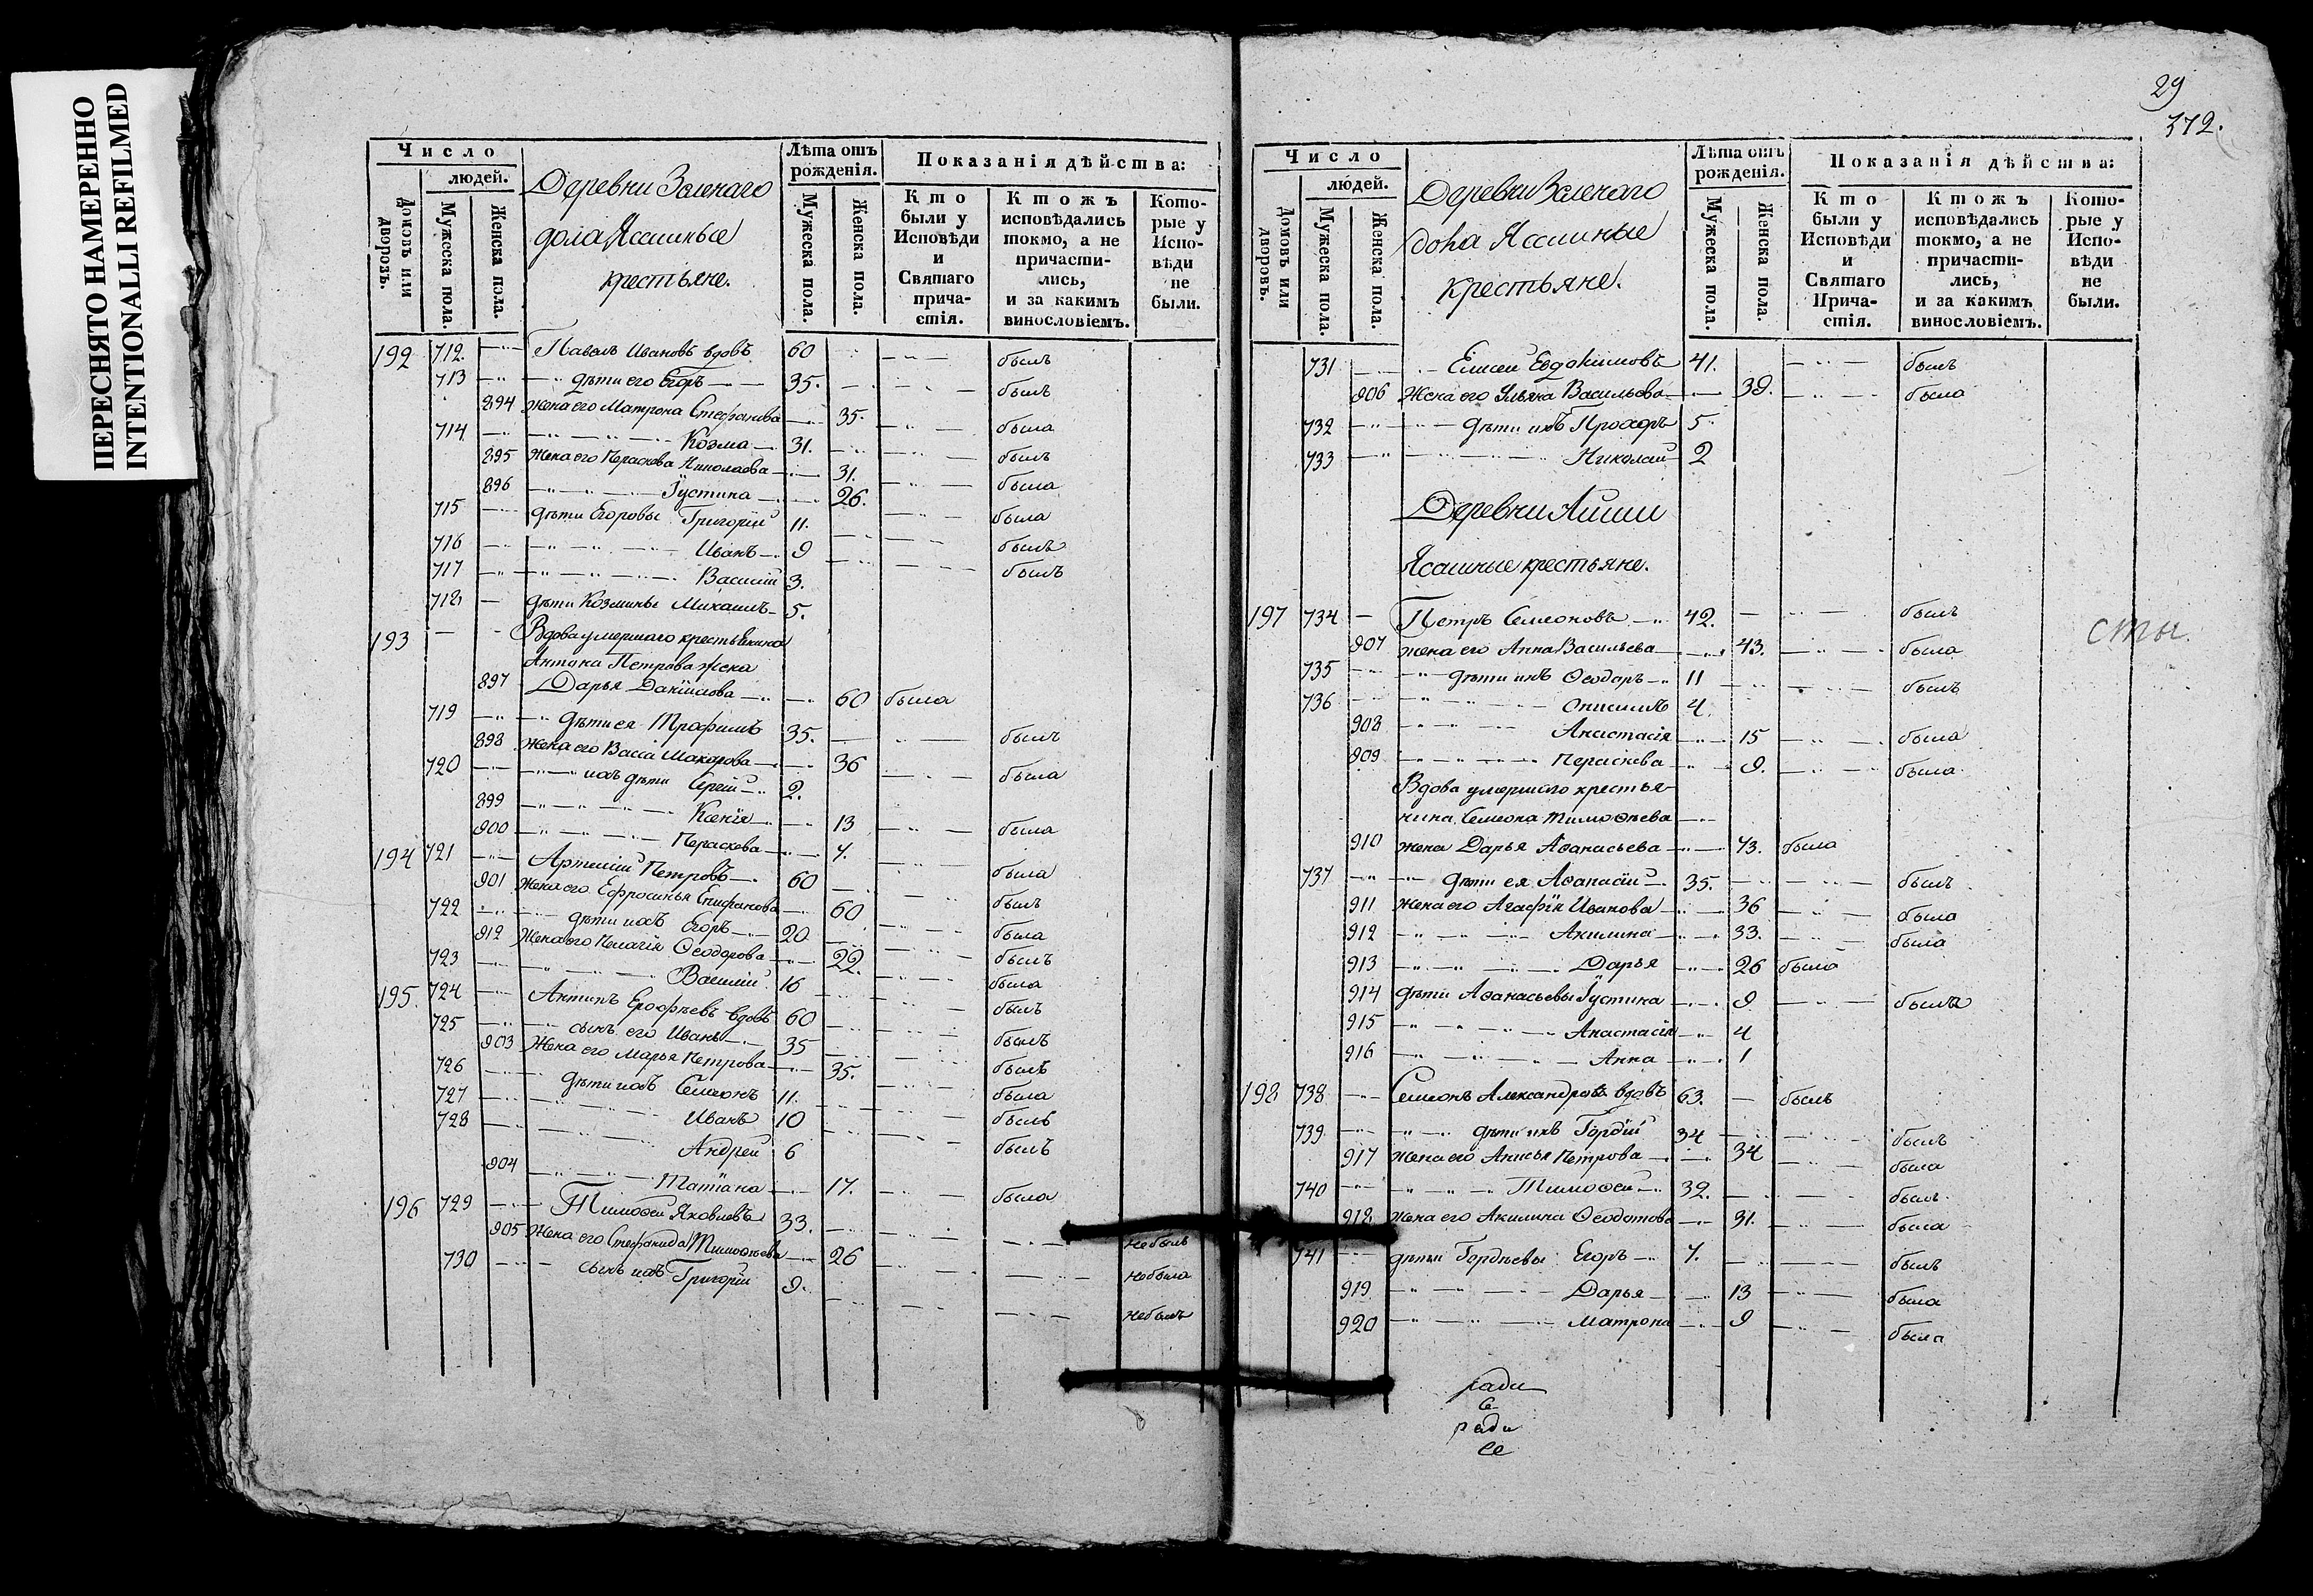 ПЕРЕСНЯТО НАМЕРЕННО
INTENTIONALLI REFILMED
Число
людей.
Домовъ или дворовъ.
Мужеска пола.
Женска пола.
Деревни Зеленаго
дола Ясашные
крестьяне.
Лѣта отъ рожденія.
Мужеска пола.
Женска пола.
Показанія дѣйства:
Кто были у Исповѣди и Святаго прича-стія.
Ктожъ исповѣдались токмо, а не причасти-лись, и за какимъ винословіемъ.
Кото-рые у Испо-вѣди не были.
192 712. Павелъ Ивановъ вдовъ 60 былъ
713 дѣти его Егоръ 35. былъ
894 жена его Матрона Стефанова 35. была
714 Козма 31. былъ
895 жена его Параскева Николаева 31. была
896 Іустина 26. была
715 дѣти Егоровы Григорій 11. былъ
716 Иванъ 9 былъ
717 Василій 3.
718 дѣти Козмины Михаилъ 5.
193 Вдова умершаго крестьянина
Антона Петрова жена
897 Дарья Данїилова 60 была
719 дѣти ея Трофимъ 35. былъ
898 жена его Васса Макарова 36 была
720 ихъ дѣти Сергій 2.
899 Ксенїя 13 была
900 Параскева 7. была
194 721 Артемій Петровъ 60 былъ
901 жена его Ефросинья Епифанова 60 была
722 дѣти ихъ Егоръ 20 былъ
912 жена его Пелагія Ѳеодорова 22. была
723 Василій 16 былъ
195. 724 Антипъ Ерофѣевъ вдовъ 60 былъ
725 сынъ его Иванъ 35 былъ
903 жена его Марья Петрова 35. была
726 дѣти ихъ Семіонъ 11. былъ
727 Иванъ 10 былъ
728 Андрей 6
904 Татїана 17. была
196 729 Тимоѳей Яковлевъ 33. небылъ
905 жена его Стефанида Тимоѳеева 26 небыла
730 сынъ ихъ Григорій 9. небылъ
29
372.
Число
людей.
Домовъ или дворовъ.
Мужеска пола.
Женска пола.
Деревни Зеленаго
дола Ясашные
крестьяне.
Лѣта отъ рожденія.
Мужеска пола.
Женска пола.
Показанія дѣйства:
Кто были у Исповѣди и Святаго Прича-стія.
Ктожъ исповѣдались токмо, а не причасти-лись, и за какимъ винословіемъ.
Кото-рые у Испо-вѣди не были.
731 Елисей Евдокимовъ 41. былъ
906 жена его Ульяна Васильева 39. была
732 дѣти ихъ Прохоръ 5.
733 Николай 2
Деревни Айши
Ясашные крестьяне.
197 734 Петръ Семеоновъ 42. былъ
907 жена его Анна Васильева 43. была
735 дѣти ихъ Ѳеодоръ 11 былъ
736 Онисимъ 4.
908 Анастасія 15 была
909 Параскева 9. была
Вдова умершаго крестья-
нина Семеона Тимоѳѣева
910 жена Дарья Аѳанасьева 73. была
737 дѣти ея Аѳанасій 35. былъ
911 жена его Агафїя Иванова 36 была
912 Акилина 33. была
913 Дарья 26 была
914 дѣти Аѳанасьевы Іустина 9 была
915 Анастасія 4
916 Анна 1
198 738 Семеонъ Александровъ вдовъ 63. былъ
739 дѣти ихъ Гордій 34 былъ
917 жена его Анисья Петрова 34 была
740 Тимоѳей 32. былъ
918 жена его Акилина Ѳеодотова 31. была
741 дѣти Гордѣевы Егоръ 7. былъ
919 Дарья 13 была
920 Матрона 9 была
сты.
ради
Се
ради
се